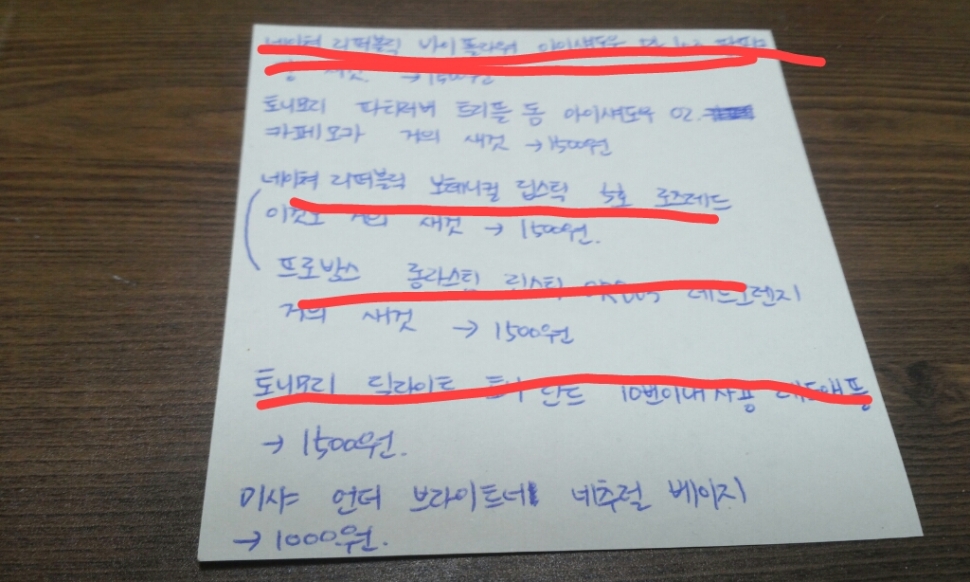 네이쳐 리퍼블릭 바이플라워 아이섀도우
새것 →1500원
토니모리 파티러버 트리플 돔 아이섀도우 02.
카페모카 거의 새것 →1500원
네이쳐 리퍼블릭 보태니컬 립스틱 5호 로즈레드
이것도 거의 새것 → 1500원.
프로방스 롱라스팅 립스틱 레드오렌지
거의 새것 → 1500원
토니모리 딜라이트 토니 틴트 10번이내사용 레드애플
→ 1500원.
미샤 언더 브라이트너 네추럴 베이지
→ 1000원.